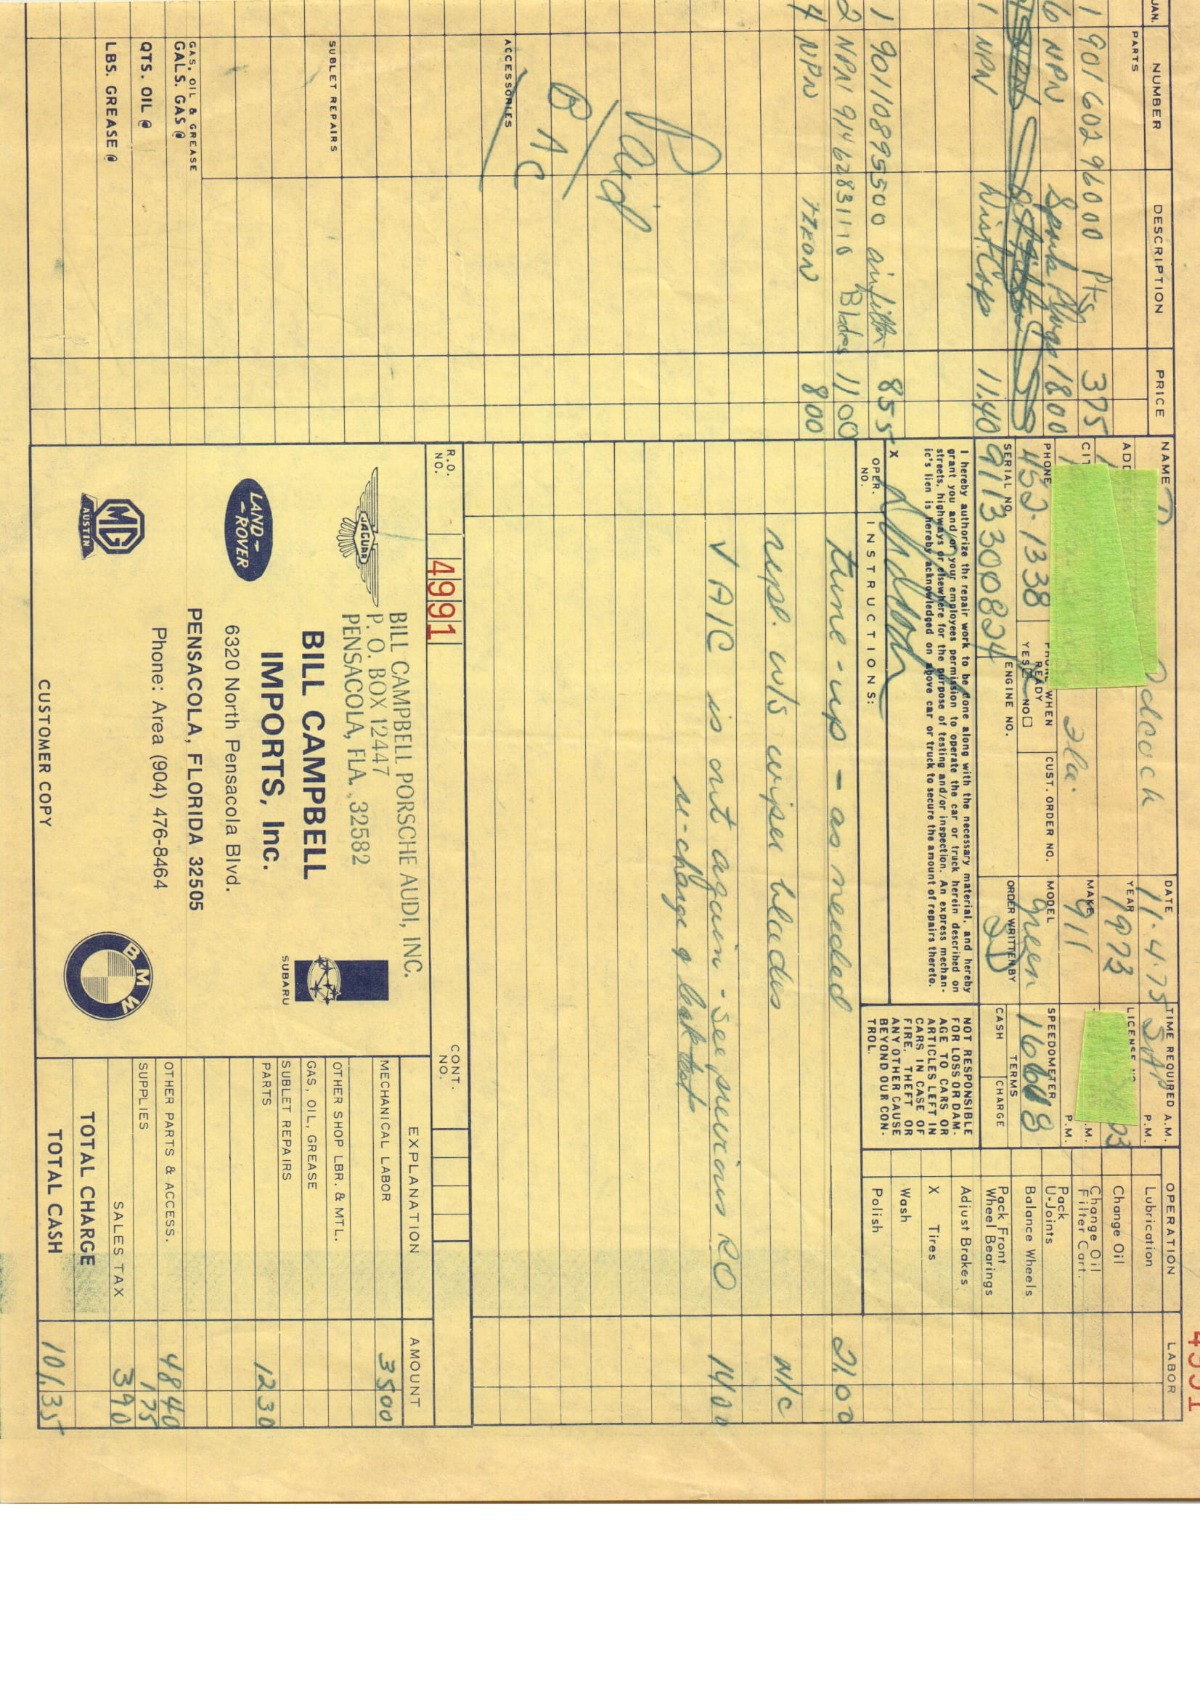 4991
QUAN.
NUMBER
DESCRIPTION
PRICE
PARTS
1 901 602 96000 Pts 375
6 NPN Spark Plugs 1800
1 NPN Dist. Cap 11.40
1 90110895500 airfilter 855
2 NPN 914 62831110 Blades 1100
4 NPN FREON 800
Paid
B/AC
ACCESSORIES
SUBLET REPAIRS
GAS, OIL & GREASE
GALS. GAS @
QTS. OIL @
LBS. GREASE @
NAME
DATE 11.4.75
TIME REQUIRED A.M.
P.M.
YEAR 1973
LICENSE NO.
Fla.
MAKE 911
P.M.
PHONE 452-1338
PHONE WHEN READY
YES NO
CUST. ORDER NO.
MODEL green
SPEEDOMETER
SERIAL NO. 9113300824
ENGINE NO.
ORDER WRITTEN BY
TERMS
CASH
CHARGE
I hereby authorize the repair work to be done along with the necessary material, and hereby
grant you and/or your employees permission to operate the car or truck herein described on
streets, highways or elsewhere for the purpose of testing and/or inspection. An express mechan-
ic's lien is hereby acknowledged on above car or truck to secure the amount of repairs thereto.
X
NOT RESPONSIBLE
FOR LOSS OR DAM-
AGE TO CARS OR
ARTICLES LEFT IN
CARS IN CASE OF
FIRE, THEFT OR
ANY OTHER CAUSE
BEYOND OUR CON-
TROL.
OPERATION
LABOR
Lubrication
Change Oil
Change Oil
Filter Cart.
Pack
U-Joints
Balance Wheels
Pack Front
Wheel Bearings
Adjust Brakes
X Tires
Wash
Polish
OPER. NO.
INSTRUCTIONS:
tune-up - as needed 21.00
repl. w/s wiper blades N/C
✓ A/C is out again - see previous RO 14.00
re-charge & leak test
R.O. NO. 4991
CONT. NO.
BILL CAMPBELL PORSCHE AUDI, INC.
P. O. BOX 12447
PENSACOLA, FLA. 32582
JAGUAR
BILL CAMPBELL
IMPORTS, Inc.
SUBARU
LAND-ROVER
6320 North Pensacola Blvd.
PENSACOLA, FLORIDA 32505
Phone: Area (904) 476-8464
MG
AUSTIN
BMW
CUSTOMER COPY
EXPLANATION
AMOUNT
MECHANICAL LABOR 3500
OTHER SHOP LBR. & MTL.
GAS, OIL, GREASE
SUBLET REPAIRS
PARTS 1230
OTHER PARTS & ACCESS. 4840
SUPPLIES 175
SALES TAX 390
TOTAL CHARGE
TOTAL CASH 101.35